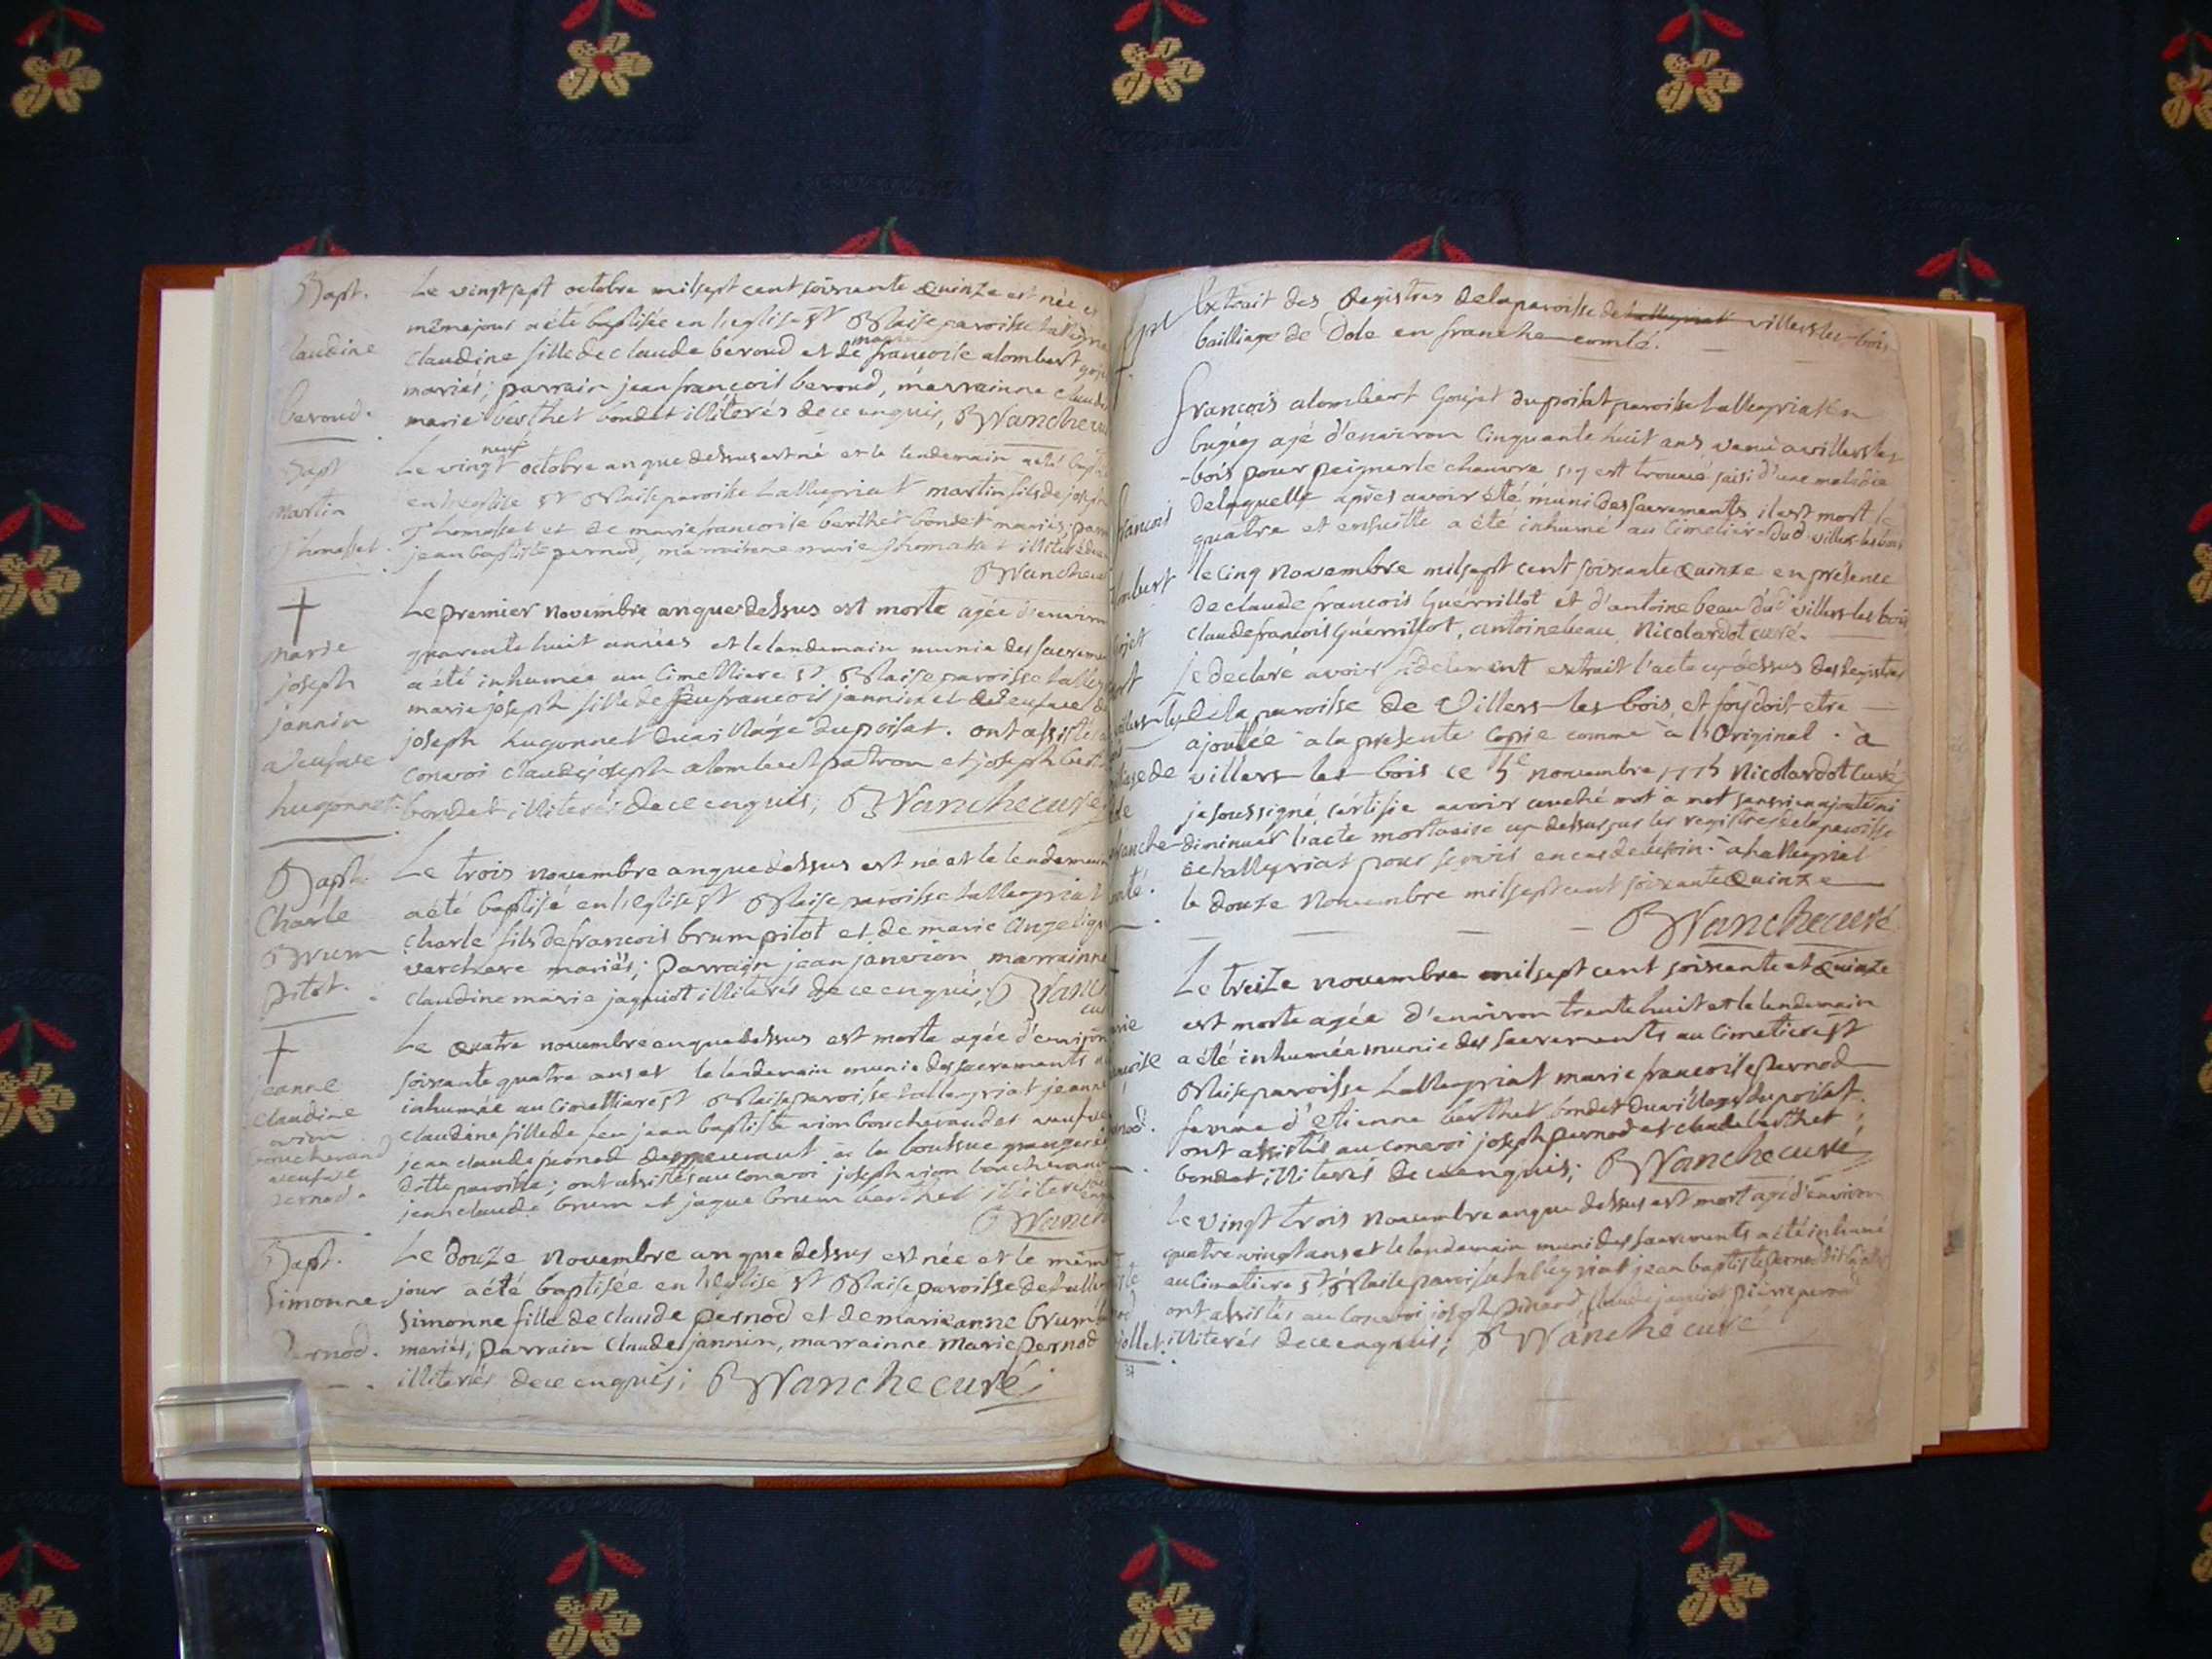 Bapt.
Claudine
beroud.
Le vingt sept octobre mil sept cent soixante Quinze est née et
même jour a été baptisée en l'eglise St Blaise paroisse tallegria
Claudine fille de claude beroud et de françoise alombert
mariés; parrain jean françois beroud, marrainne
marie berthet bondet illiterés de ce enquis, BWanche
Bapt
martin
Thomasset.
Le vingt neuf octobre an que dessus est né et le lendemain a été
en l'eglise St Blaise paroisse tallegriat martin fils de joseph
Thomasset et de marie francoise berthet bondet mariés;
jean baptiste pernod, marrainne marie Thomasset
BWanche
†
marie
joseph
jannin
veufve
hugonnet.
Le premier novembre an que dessus est morte agée d'environ
quarente huit années et le landemain munie des sacrem
a été inhumée au Cimettiere St Blaise paroisse talle
marie joseph fille de feu francois jannin et veufve de
joseph hugonnet du village du poisat. ont assistés
convoi claude joseph alombert patron et joseph bert
bondet illiterés de ce enquis; BWanche curé
Bapt.
Charle
Brum
pitot.
Le trois novembre an que dessus est né et le lendemain
a été baptisé en l'eglise St Blaise paroisse tallegriat
charle fils de francois brum pitot et de marie Angeliq
verchere mariés; parrain jean janvion marrainne
claudine marie jaquiot illiterés de ce enquis; BWanch
cu
†
jeanne
claudine
avion
boucherand
veufve
pernod.
Le Quatre novembre an que dessus est morte agée d'environ
soixante quatre ans et le lendemain munie des sacrements
inhumée au Cimettiere St Blaise paroisse tallegriat jeann
claudine fille de feu jean baptiste avion et veufve
jean claude pernod demeurant a la boussue
ditte paroisse; ont assistés au convoi joseph avion
jean claude brum et jaque brum berthet illiteres
BWanch
Bapt.
Simonne
Pernod.
Le douze Novembre an que dessus est née et le mêm
jour a été baptisée en l'eglise St Blaise paroisse de talle
Simonne fille de claude Pernod et de marie anne brum
mariés; parrain claude jannin, marrainne Marie pernod
illiterés de ce enquis; BWanche curé;
Extrait des Registres de la paroisse de villers les-bois
bailliage de Dole en franche-comté.
François alombert Gojet du poisat paroisse tallegriat en
bugey agé d'environ Cinquante huit ans venu a villers les
-bois pour peigner le chanvre s'y est trouvé saisi d'une maladie
de laquelle après avoir été muni des sacrements il est mort le
quatre et ensuitte a été inhumé au Cimetiér dud villers-les bois
le cinq novembre mil sept cent soixante Quinze en présence
de claude francois Guérrillot et d'antoine beau dud villers-les bois
claude francois Guérrillot, antoine beau, Nicolardot curé.
Je déclare avoir fidelement extrait l'acte cy dessus des registres
de la paroisse de Villers-les-bois, et foy doit etre
ajoutée a la presente Copie comme à l'Original. à
villers-les-bois ce 5e novembre 1775 Nicolardot Curé
je soussigné certifie avoir couché mot à mot sans rien ajoutér ni
diminuer l'acte mortuaire cy dessus sur les registres de la paroisse
de tallegriat pour servir en cas de besoin. à tallegriat
le douze Novembre mil sept cent soixante Quinze
BWanche curé
Le treize novembre mil sept cent soixante et Quinze
est morte agée d'environ trente huit et le lendemain
a été inhumée munie des sacrements au Cimetiere St
Blaise paroisse tallegriat marie francoise Pernod
femme d'etienne berthet bondet du village du poisat.
ont assistés au convoi joseph pernod et claude berthet
bondet illiterés de ce enquis; BWanche curé
Le vingt trois Novembre an que dessus est mort agé d'environ
quatre vingt ans et le lendemain muni des sacrements a été inhumé
au Cimetiere St Blaise paroisse tallegriat jean baptiste Pernod dit
ont assistés au Convoi joseph pernod, claude pierre pernod
illiterés de ce enquis; BWanche curé